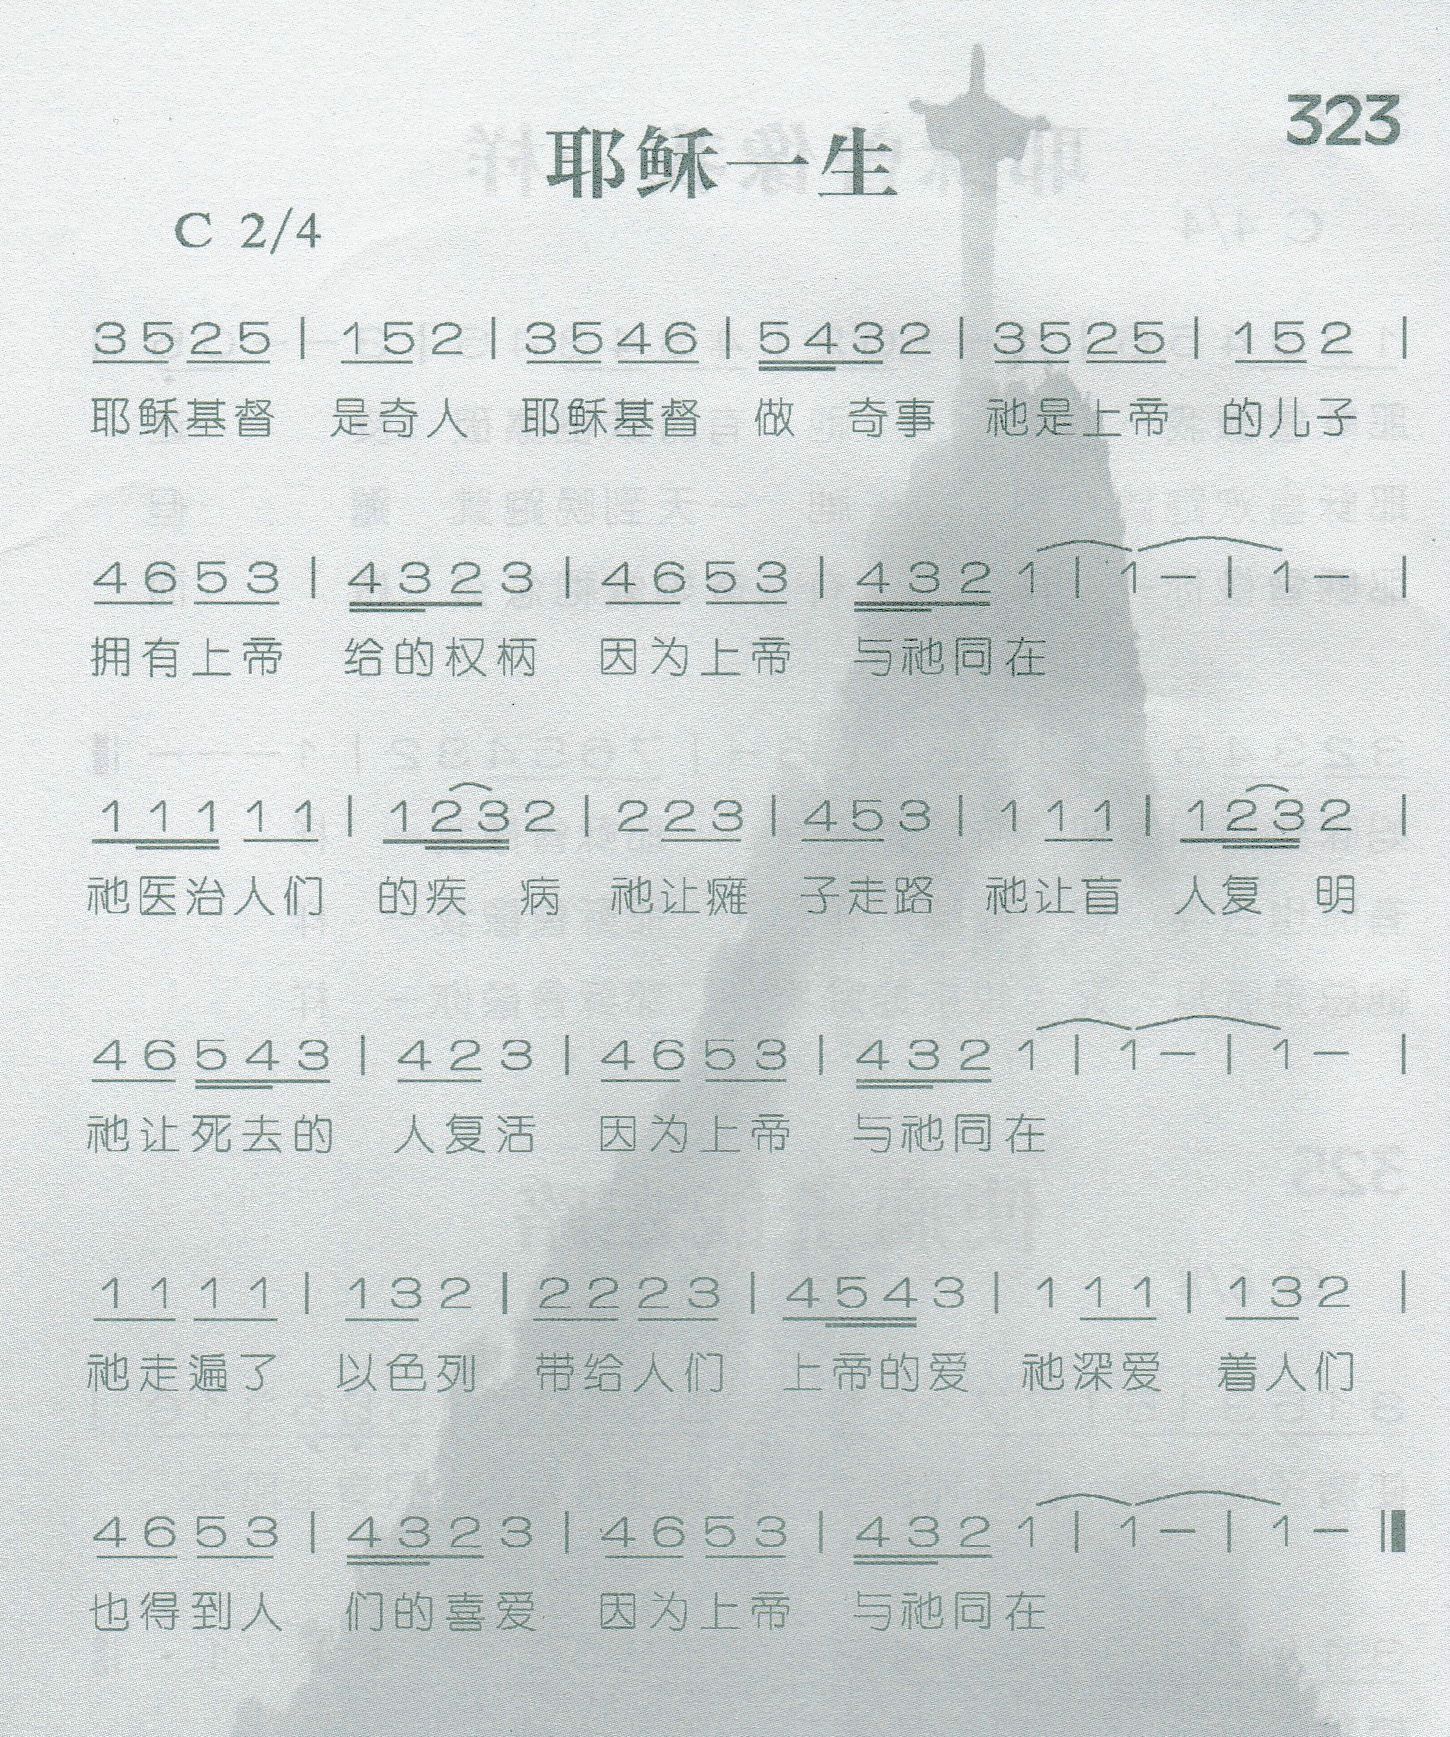 323
耶稣一生
C 2/4
3 5 2 5 | 1 5 2 | 3 5 4 6 | 5 4 3 2 | 3 5 2 5 | 1 5 2 |
耶稣基督 是奇人 耶稣基督 做 奇事 祂是上帝 的儿子
4 6 5 3 | 4 3 2 3 | 4 6 5 3 | 4 3 2 1 | 1 — | 1 — |
拥有上帝 给的权柄 因为上帝 与祂同在
1 1 1 1 1 | 1 2 3 2 | 2 2 3 | 4 5 3 | 1 1 1 | 1 2 3 2 |
祂医治人们 的疾 病 祂让瘫 子走路 祂让盲 人复 明
4 6 5 4 3 | 4 2 3 | 4 6 5 3 | 4 3 2 1 | 1 — | 1 — |
祂让死去的 人复活 因为上帝 与祂同在
1 1 1 1 | 1 3 2 | 2 2 2 3 | 4 5 4 3 | 1 1 1 | 1 3 2 |
祂走遍了 以色列 带给人们 上帝的爱 祂深爱 着人们
4 6 5 3 | 4 3 2 3 | 4 6 5 3 | 4 3 2 1 | 1 — | 1 — ‖
也得到人 们的喜爱 因为上帝 与祂同在